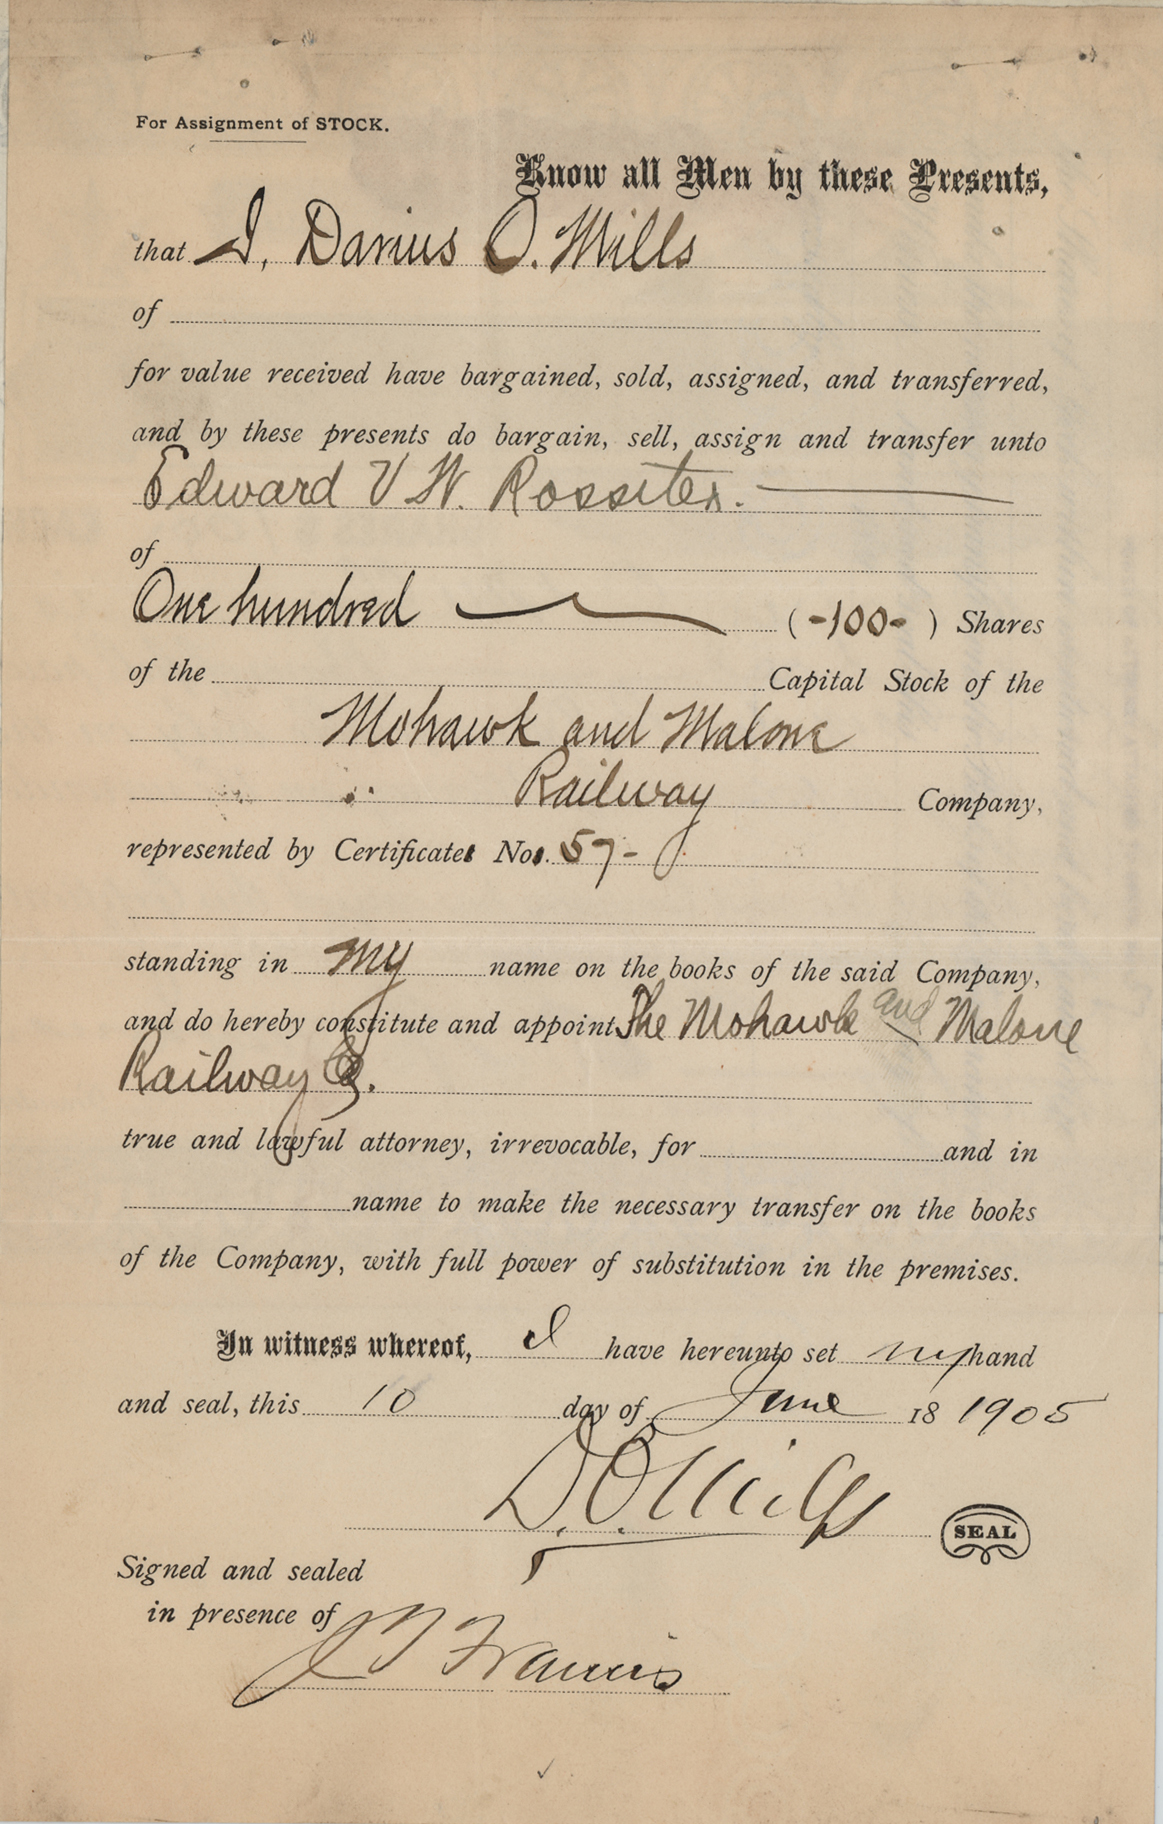 For Assignment of STOCK.
Know all Men by these Presents,
that I, Darius O. Mills
of
for value received have bargained, sold, assigned, and transferred,
and by these presents do bargain, sell, assign and transfer unto
Edward V W. Rossiter.
of
One hundred (-100-) Shares
of the Capital Stock of the
Mohawk and Malone
Railway Company,
represented by Certificates Nos. 57-
standing in my name on the books of the said Company,
and do hereby constitute and appoint The Mohawk and Malone
Railway Co.
true and lawful attorney, irrevocable, for and in
name to make the necessary transfer on the books
of the Company, with full power of substitution in the premises.
In witness whereof, I have hereunto set my hand
and seal, this 10 day of June 18 1905
D. O. Mills SEAL
Signed and sealed
in presence of
Francis